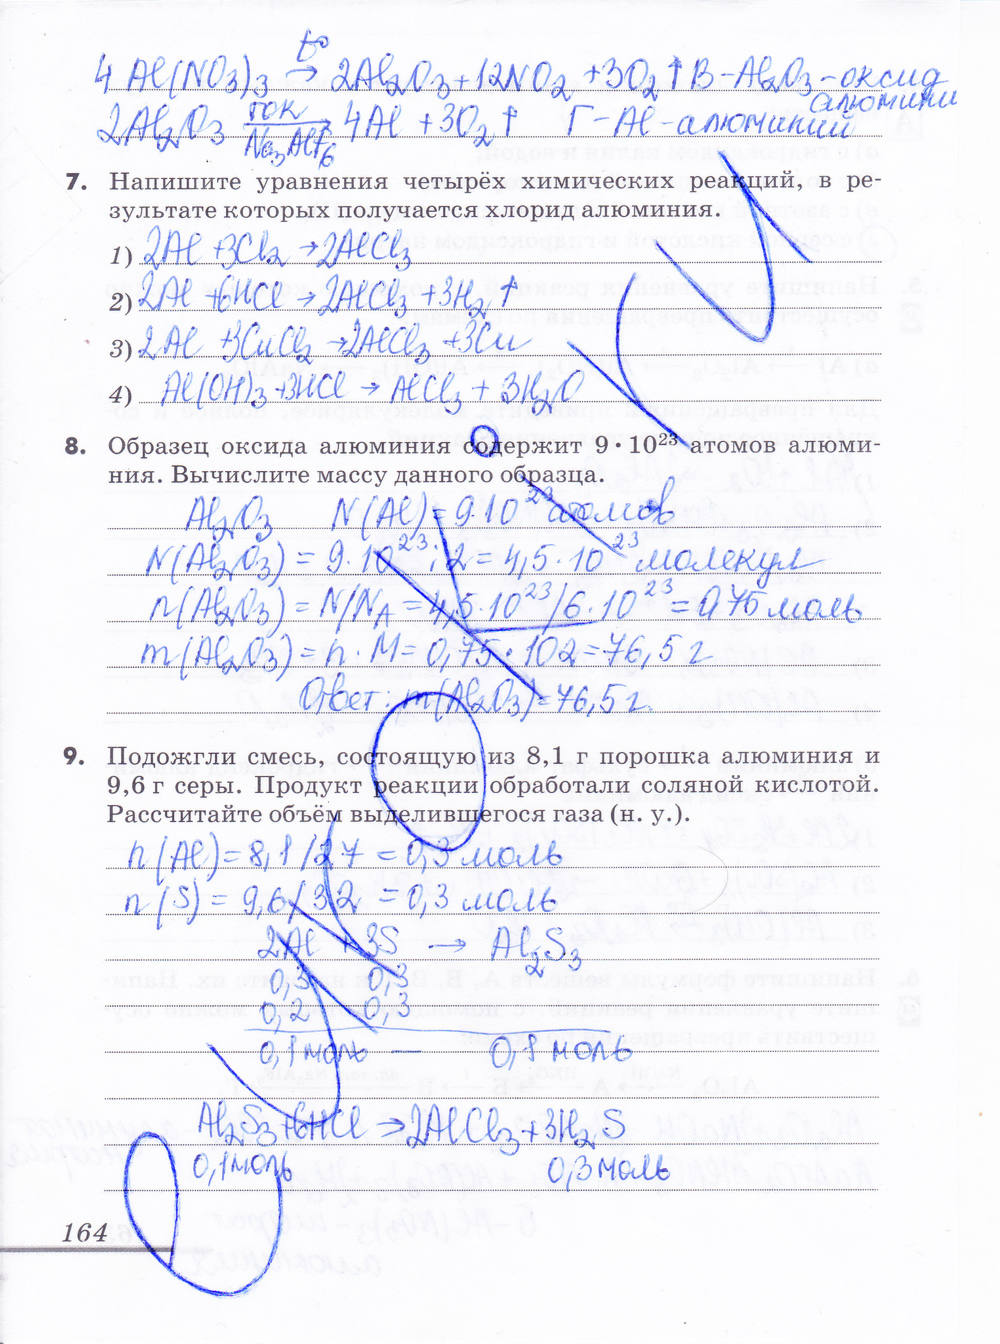 t°
4Al(NO3)3 → 2Al2O3 + 12NO2 + 3O2↑ В - Al2O3 - оксид
алюмини
2Al2O3 ток → 4Al + 3O2↑ Г - Al - алюминий
Na3AlF6
7. Напишите уравнения четырёх химических реакций, в ре-
зультате которых получается хлорид алюминия.
1) 2Al + 3Cl2 → 2AlCl3
2) 2Al + 6HCl → 2AlCl3 + 3H2↑
3) 2Al + 3CuCl2 → 2AlCl3 + 3Cu
4) Al(OH)3 + 3HCl → AlCl3 + 3H2O
8. Образец оксида алюминия содержит 9 · 10²³ атомов алюми-
ния. Вычислите массу данного образца.
Al2O3 N(Al) = 9·10²³ атомов
N(Al2O3) = 9·10²³ : 2 = 4,5·10²³ молекул
n(Al2O3) = N/NA = 4,5·10²³/6·10²³ = 0,75 моль
m(Al2O3) = n·M = 0,75·102 = 76,5 г
Ответ: m(Al2O3) = 76,5 г.
9. Подожгли смесь, состоящую из 8,1 г порошка алюминия и
9,6 г серы. Продукт реакции обработали соляной кислотой.
Рассчитайте объём выделившегося газа (н. у.).
n(Al) = 8,1/27 = 0,3 моль
n(S) = 9,6/32 = 0,3 моль
2Al + 3S → Al2S3
0,3 0,3
0,2 0,3
0,1 моль — 0,1 моль
Al2S3 + 6HCl → 2AlCl3 + 3H2S
0,1 моль 0,3 моль
164